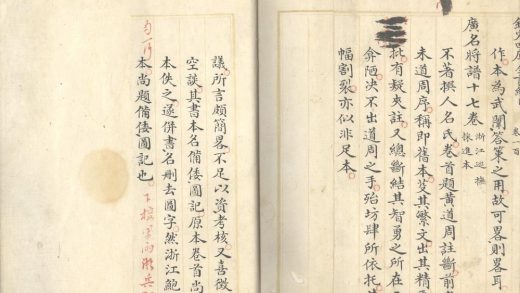 作本為武闈答策之用故可畧則畧耳
廣名將譜十七卷 浙江巡撫採進本
不著撰人名氏卷首題黃道周註斷前
未道周序稱即舊本芟其繁文出其精
批有疑夾註又總斷結其智勇之所在
弇陋决不出道周之手殆坊肆所依托
幅割裂亦似非足本
議所言頗簡畧不足以資考核又喜微
空談其書本名備倭圖記原本卷首尚
本佚之遂併書名刪去圖字然浙江鮑
本尚題備倭圖記也